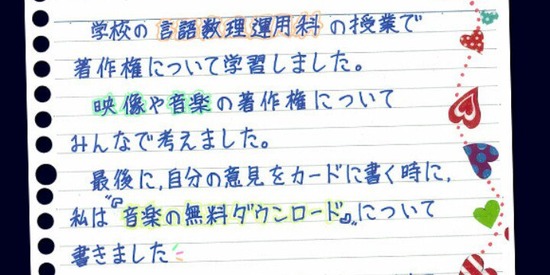 学校の言語数理運用科の授業で
著作権について学習しました。
映像や音楽の著作権について
みんなで考えました。
最後に,自分の意見をカードに書く時に,
私は"音楽の無料ダウンロード"について
書きました